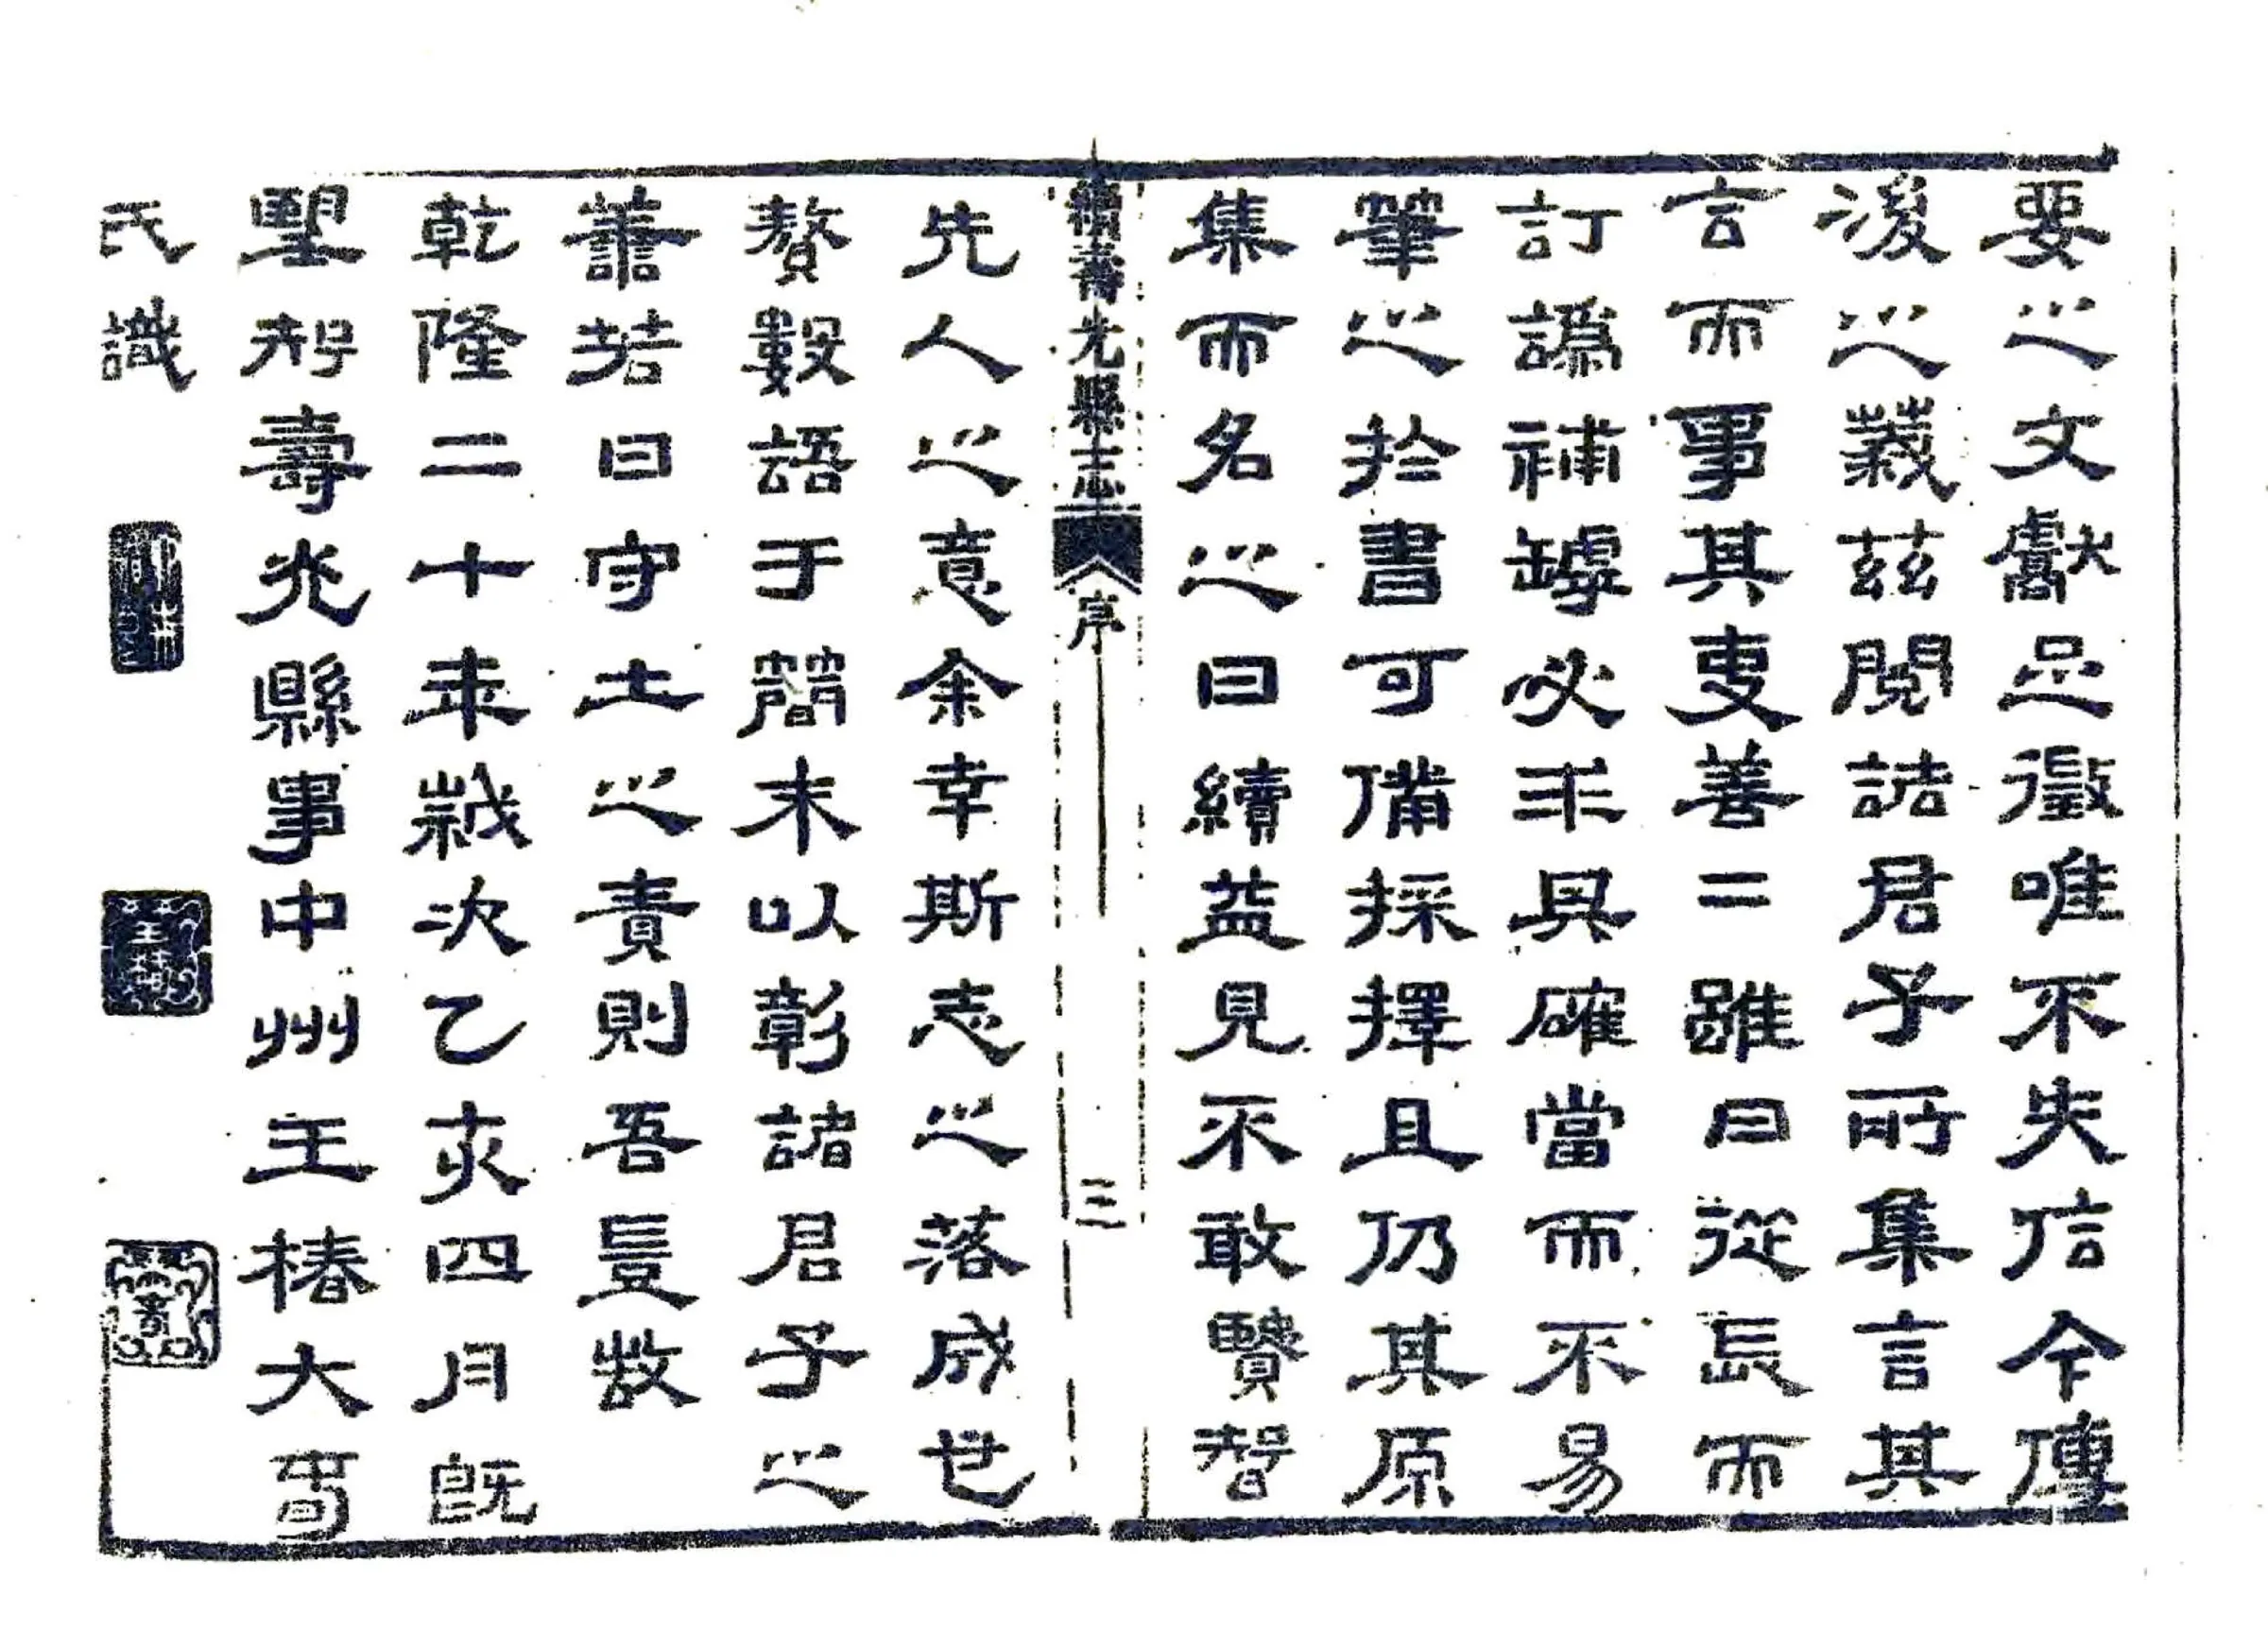 要之文獻足徵唯不失信今傳
後之義茲閱諸君子所集言其
言而事其叓善〻雖曰從長而
訂譌補罅必求具確當而不易
筆之於書可備採擇且仍其原
集而名之曰續益見不敢賢智
續壽光縣志 序 三
先人之意余幸斯志之落成也
贅數語于簡末以彰諸君子之
善若曰守土之責則吾豈敢
乾隆二十年歲次乙亥四月既
望知壽光縣事中州王椿大
氏識